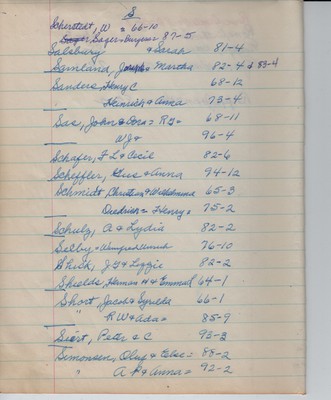 S
Scherstedt, W = 66-10
Sager, Sager = Burgess 87-5
Salsbury & Sarah 81-4
Samland, Joseph = Martha 82-4 & 83-4
Sanders, Henry C 68-12
" Heinrich & Anna 73-4
Sas, John & Dora = R G = 68-11
" W J & 96-4
Schafer, F L & Cecil 82-6
Scheffler, Gus & Anna 94-12
Schmidt, Christian & Wilhelmina 65-3
Diedrich = Henry = 75-2
Schulz, A & Lydia 82-2
Selby = 76-10
Shick, J G & Lizzie 82-2
Shields, Herman H & Emma 64-1
Short, Jacob & 66-1
" R W & Ada = 85-9
Siert, Peter & C 93-3
Simonsen, Oluf & Else = 88-2
" A P & Anna = 92-2